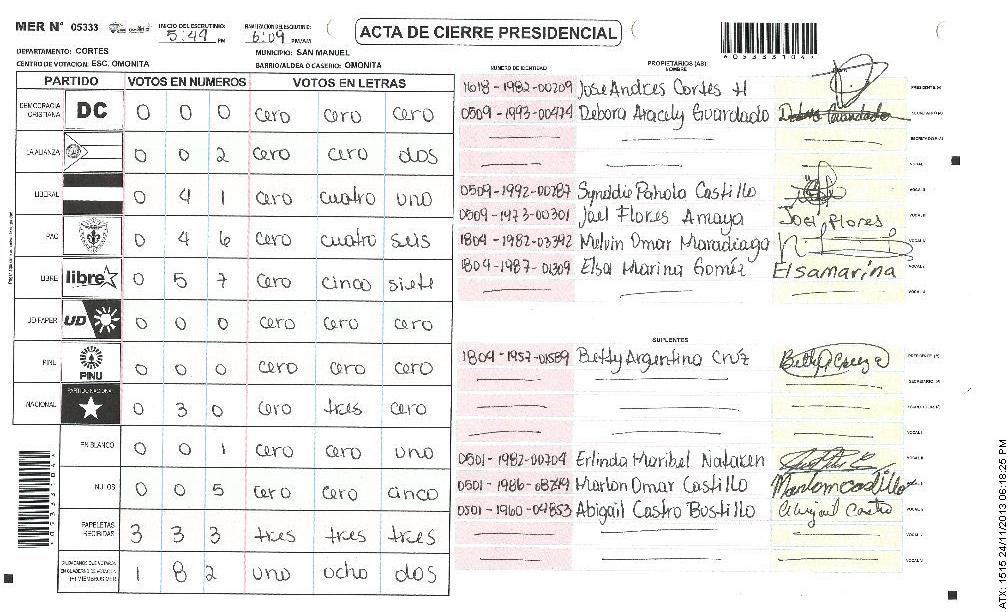 MER N° 05333 INICIO DEL ESCRUTINIO: 5:49 PM FINALIZACION DEL ESCRUTINIO: 6:09 PM/AM
ACTA DE CIERRE PRESIDENCIAL
DEPARTAMENTO: CORTES MUNICIPIO: SAN MANUEL
CENTRO DE VOTACION: ESC. OMONITA BARRIO/ALDEA O CASERIO: OMONITA
PARTIDO VOTOS EN NUMEROS VOTOS EN LETRAS
DEMOCRACIA CRISTIANA DC 0 0 0 cero cero cero
LA ALIANZA 0 0 2 cero cero dos
LIBERAL 0 4 1 cero cuatro uno
PAC 0 4 6 cero cuatro seis
LIBRE libre 0 5 7 cero cinco siete
UD FAPER UD 0 0 0 cero cero cero
PINU PINU 0 0 0 cero cero cero
NACIONAL PARTIDO NACIONAL 0 3 0 cero tres cero
EN BLANCO 0 0 1 cero cero uno
NULOS 0 0 5 cero cero cinco
PAPELETAS RECIBIDAS 3 3 3 tres tres tres
CIUDADANOS QUE VOTARON 1 8 2 uno ocho dos
NUMERO DE IDENTIDAD PROPIETARIOS (AS) NOMBRE
1618-1982-00209 Jose Andres Cortes H PRESIDENTE (A)
0509-1993-00474 Debora Aracely Guardado Debora Guardado SECRETARIO (A)
ESCRUTADOR (A)
VOCAL I
0509-1992-00787 Pahola Castillo VOCAL II
0509-1973-00301 Joel Flores Amaya Joel Flores
1804-1982-03392 Melvin Omar Maradiaga
1804-1987-01309 Elsa Marina Goméz Elsamarina
SUPLENTES
1804-1957-01589 Betty Argentina Cruz PRESIDENTE (A)
SECRETARIO (A)
ESCRUTADOR (A)
VOCAL I
0501-1982-00704 Erlinda Maribel Nataren VOCAL II
Marlon Omar Castillo Marlon castillo
0501-1960-04853 Abigail Castro Bustillo Abigail Castro
ATX: 1515 24/11/2013 06:18:25 PM